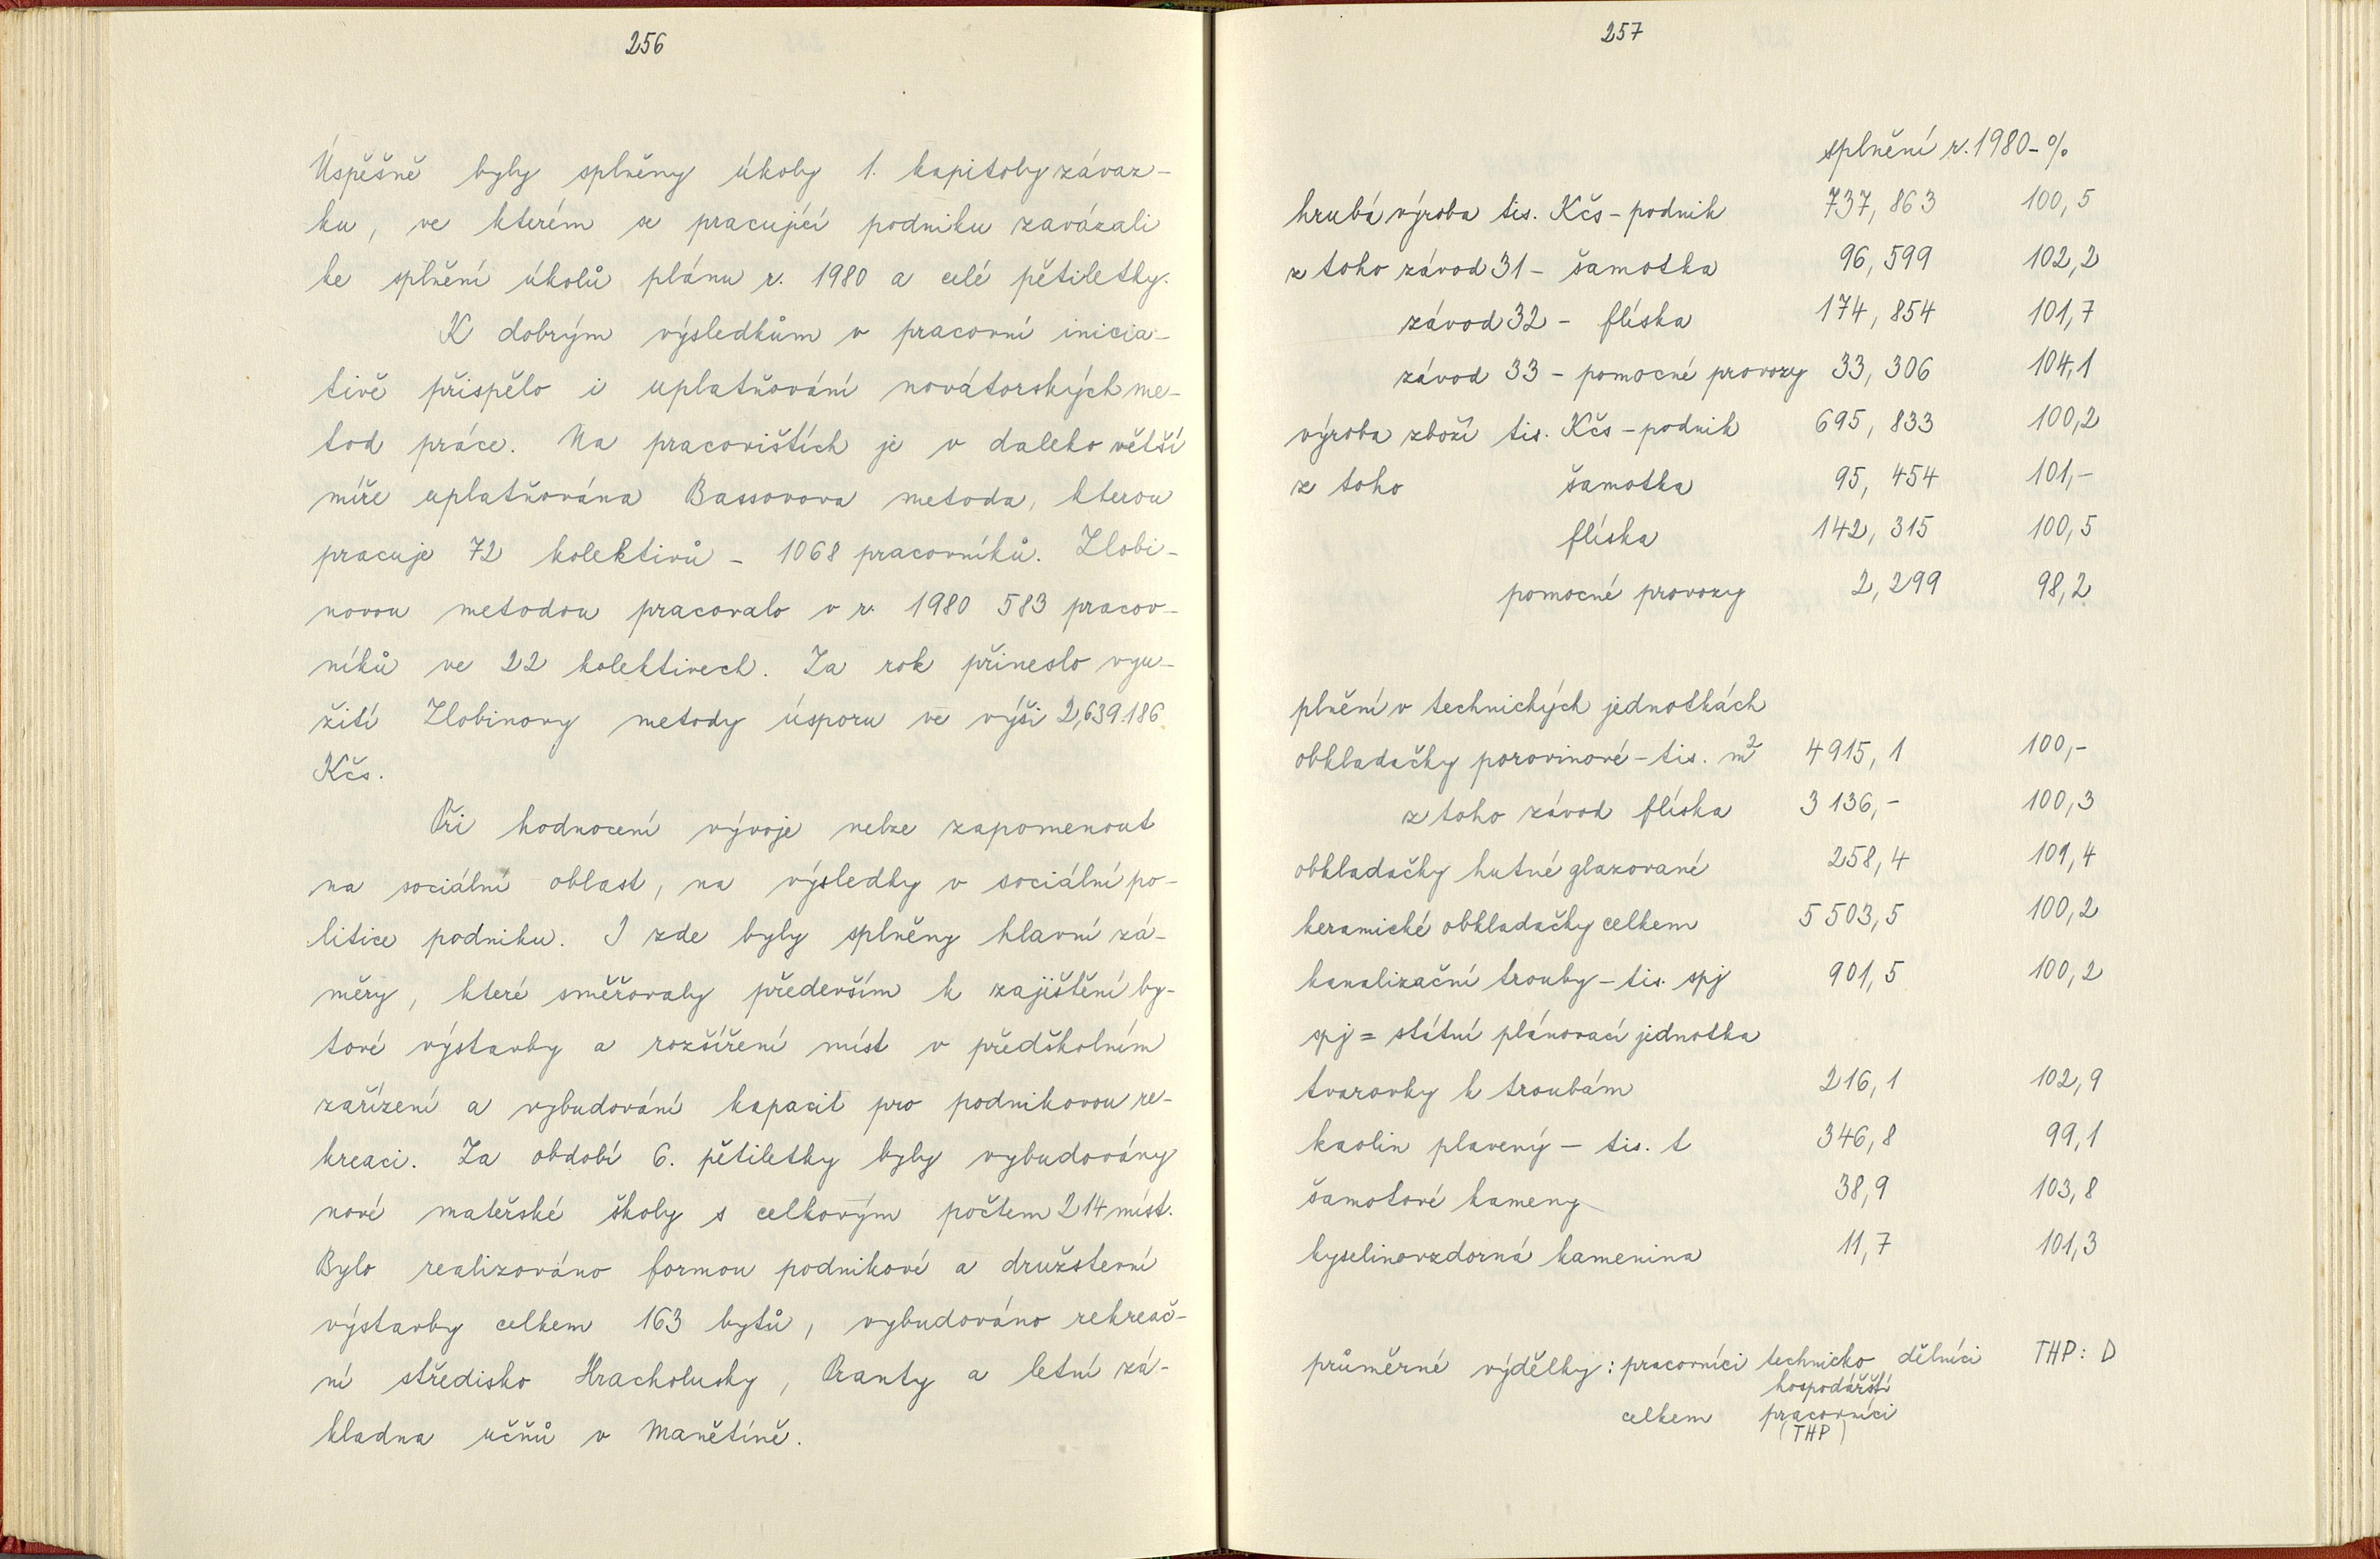 256
Úspěšně byly splněny úkoly 1. kapitoly závaz-
ku, ve kterém se pracující podniku zavázali
ke splnění úkolů plánu r. 1980 a celé pětiletky.
K dobrým výsledkům v pracovní inicia-
tivě přispělo i uplatňování novátorských me-
tod práce. Na pracovištích je v daleko větší
míře uplatňována Bassovova metoda, kterou
pracuje 72 kolektivů - 1068 pracovníků. Zlobi-
novou metodou pracovalo v r. 1980 583 pracov-
níků ve 22 kolektivech. Za rok přineslo vyu-
žití Zlobinovy metody úsporu ve výši 2,639.186
Kčs.
Při hodnocení vývoje nelze zapomenout
na sociální oblast, na výsledky v sociální po-
litice podniku. I zde byly splněny hlavní zá-
měry, které směřovaly především k zajištění by-
tové výstavby a rozšíření míst v předškolním
zařízení a vybudování kapacit pro podnikovou re-
kreaci. Za období 6. pětiletky byly vybudovány
nové mateřské školy s celkovým počtem 214 míst.
Bylo realizováno formou podnikové a družstevní
výstavby celkem 163 bytů, vybudováno rekreač-
ní středisko Hracholusky, Pranty a letní zá-
kladna učňů v Manětíně.
257
splnění r. 1980 - %
hrubá výroba tis. Kčs - podnik 737, 863 100, 5
z toho závod 31 - šamotka 96, 599 102, 2
závod 32 - flíska 174, 854 101, 7
závod 33 - pomocné provozy 33, 306 104, 1
výroba zboží tis. Kčs - podnik 695, 833 100, 2
z toho šamotka 95, 454 101, -
flíska 142, 315 100, 5
pomocné provozy 2, 299 98, 2
plnění v technických jednotkách
obkladačky porovinové - tis. m² 4915, 1 100, -
z toho závod flíska 3 136, - 100, 3
obkladačky hutné glazované 258, 4 101, 4
keramické obkladačky celkem 5 503, 5 100, 2
kanalizační trouby - tis. spj 901, 5 100, 2
spj = státní plánovací jednotka
tvarovky k troubám 216, 1 102, 9
kaolin plavený - tis. t 346, 8 99, 1
šamotové kameny 38, 9 103, 8
kyselinovzdorná kamenina 11, 7 101, 3
průměrné výdělky: pracovníci technicko dělníci THP: D
hospodářští
celkem pracovníci
(THP)